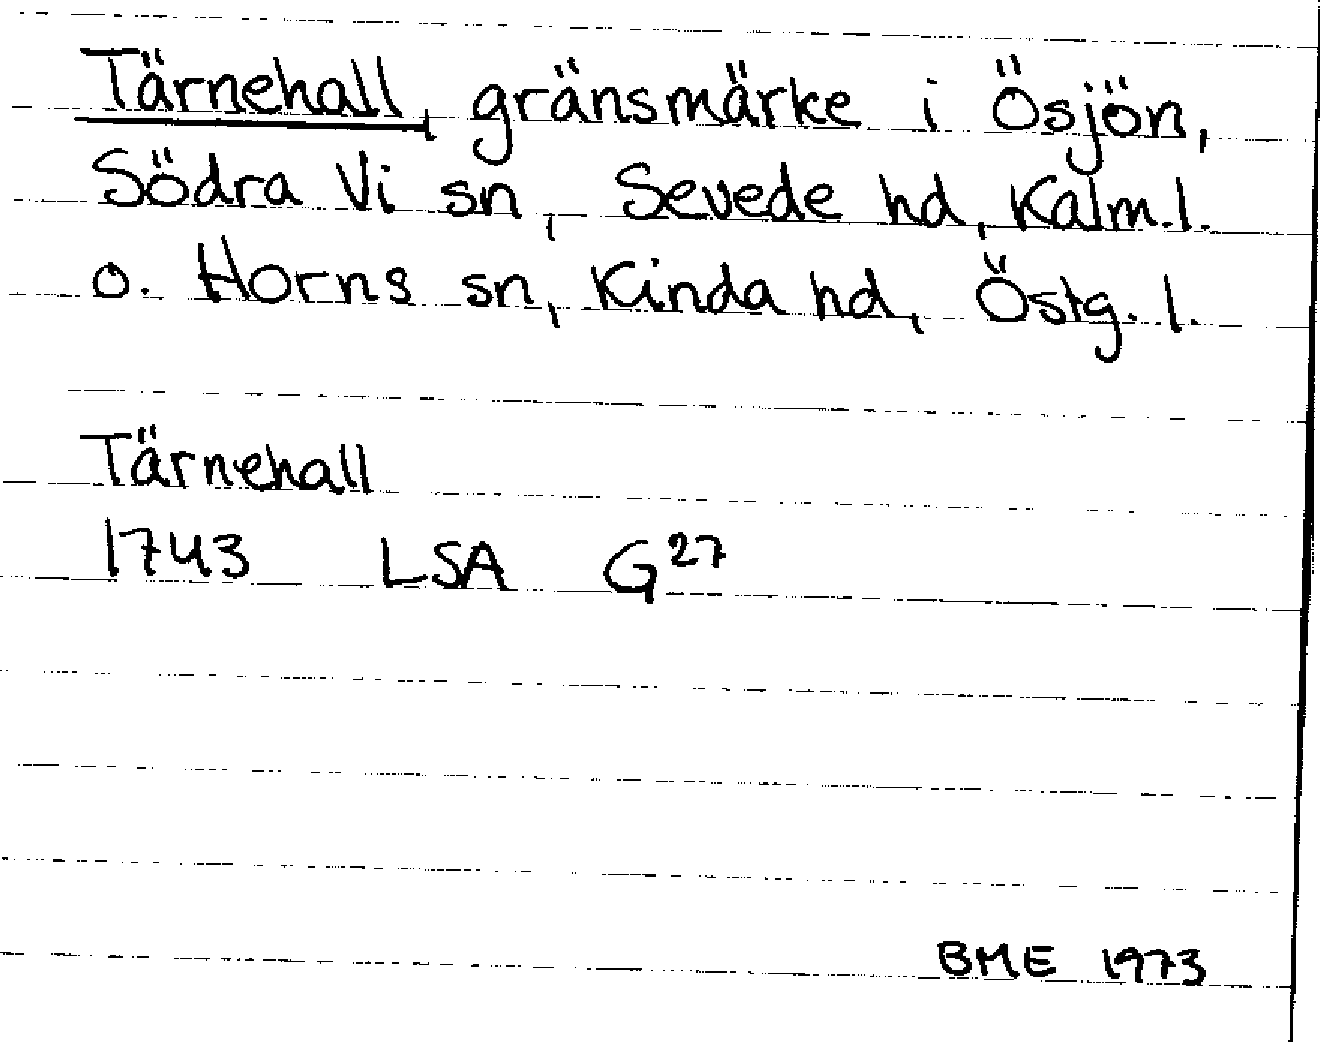 Tärnehall, gränsmärke i Ösjön,
Södra Vi sn, Sevede hd, Kalm.l.
o. Horns sn, Kinda hd, Östg. l.
Tärnehall
1743 LSA G²⁷
BME 1973